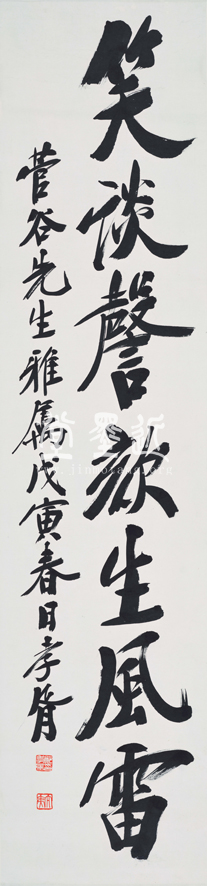 笑談謦欬生風雷
菅谷先生雅屬戊寅春日孝胥